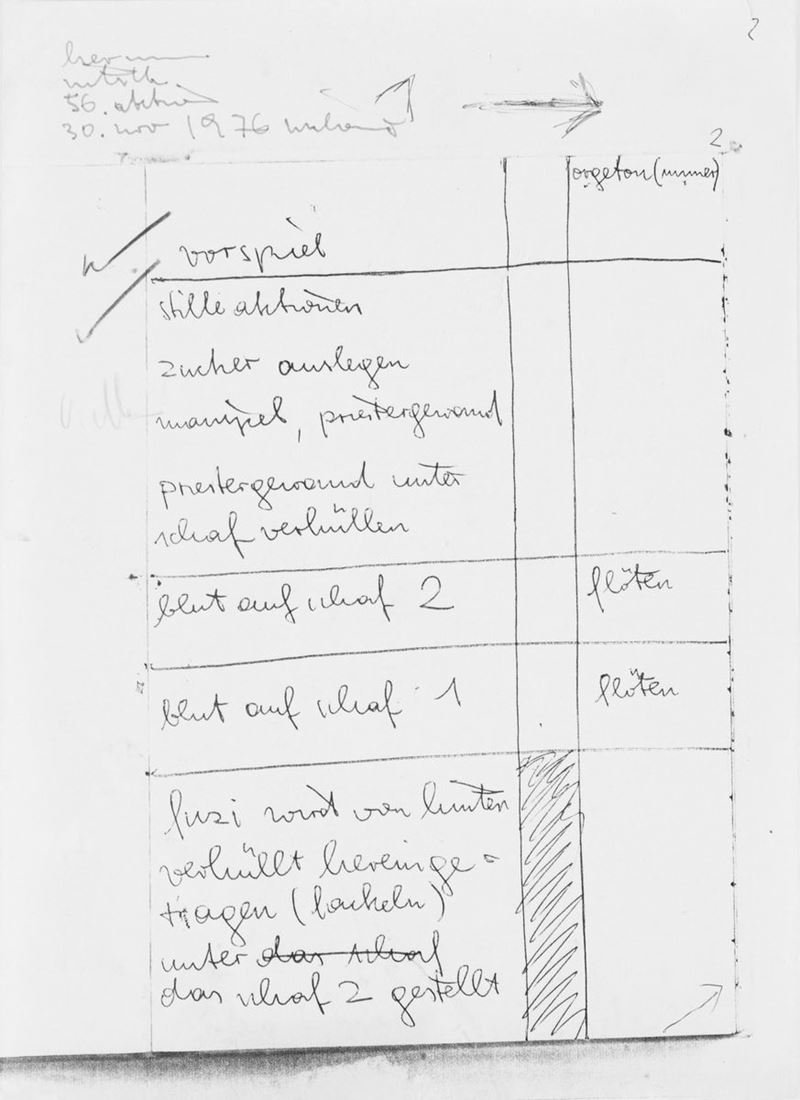 2
nitsch
56. aktion
30. nov 1976 mailand
2
orgelton (immer)
vorspiel
stille aktionen
zucker auslegen
manipel, priestergewand
priestergewand unter
schaf verhüllen
blut auf schaf 2 flöten
blut auf schaf 1 flöten
luzi wird von hinten
verhüllt hereinge=
tragen (fackeln)
unter das schaf
das schaf 2 gestellt